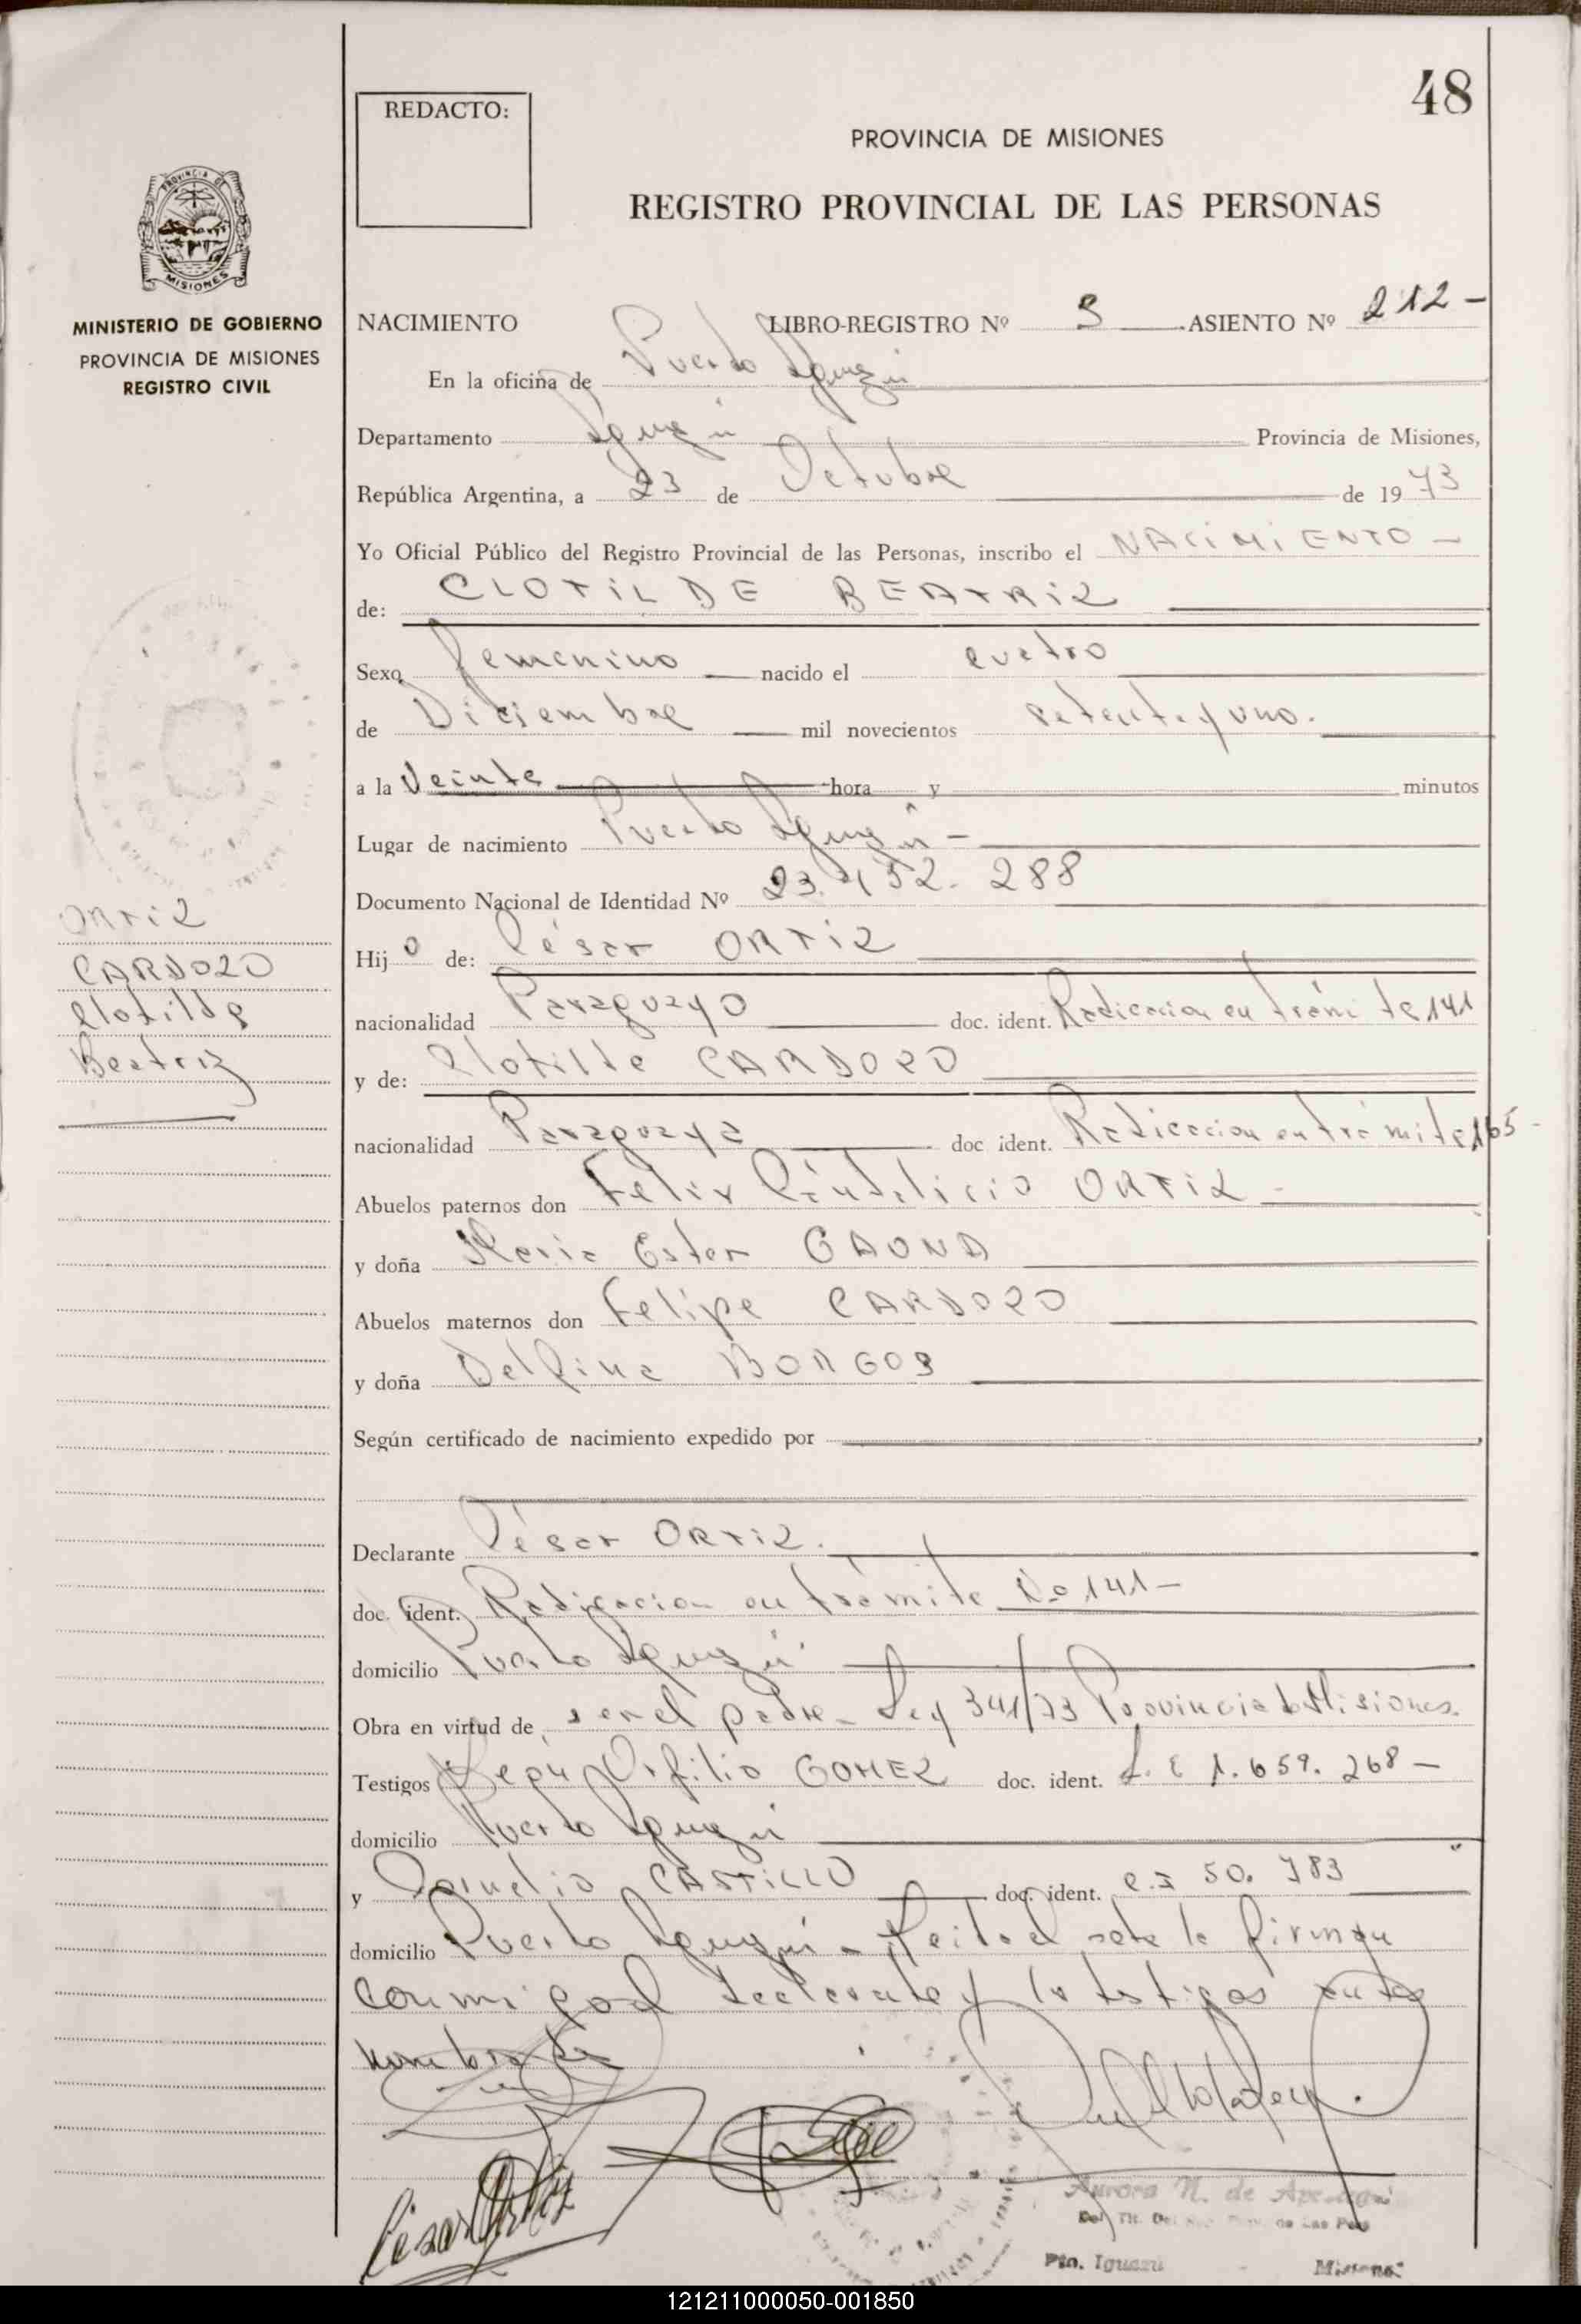 48
REDACTO:
PROVINCIA DE MISIONES
REGISTRO PROVINCIAL DE LAS PERSONAS
PROVINCIA DE
MISIONES
MINISTERIO DE GOBIERNO
PROVINCIA DE MISIONES
REGISTRO CIVIL
NACIMIENTO LIBRO-REGISTRO Nº ASIENTO Nº 212-
En la oficina de Puerto Iguazú
Departamento Iguazú Provincia de Misiones,
República Argentina, a 23 de Octubre de 1973
Yo Oficial Público del Registro Provincial de las Personas, inscribo el NACIMIENTO -
de: CLOTILDE BEATRIZ
Sexo Femenino nacido el cuatro
de Diciembre mil novecientos setenta y uno.
a la Veinte hora y minutos
Lugar de nacimiento Puerto Iguazú -
Documento Nacional de Identidad Nº 288
ORTIZ
CARDOZO
Clotilde
Beatriz
Hij de: César ORTIZ
nacionalidad Paraguayo doc. ident. Radicacion en trámite 141
y de: Clotilde CARDOZO
nacionalidad Paraguaya doc ident. Radicacion en trámite 165-
Abuelos paternos don Felix ORTIZ -
y doña Maria Ester GAONA
Abuelos maternos don Felipe CARDOZO
y doña Delfina BORGOS
Según certificado de nacimiento expedido por
Declarante César ORTIZ.
doc. ident. Radicacion en trámite No 141-
domicilio Puerto Iguazú
Obra en virtud de ser el padre - Ley 341/73 Provincia de Misiones.
Testigos Orfilio GOMEZ doc. ident. L. E 1.659.268-
domicilio Puerto Iguazú
y Cornelio CASTILLO doc. ident. 50.783
domicilio Puerto Iguazú - Leida el acta la firman
conmigo el declarante y los testigos antes
nombrados
César Ortiz
Aurora N. de
Pto. Iguazú Misiones
121211000050-001850